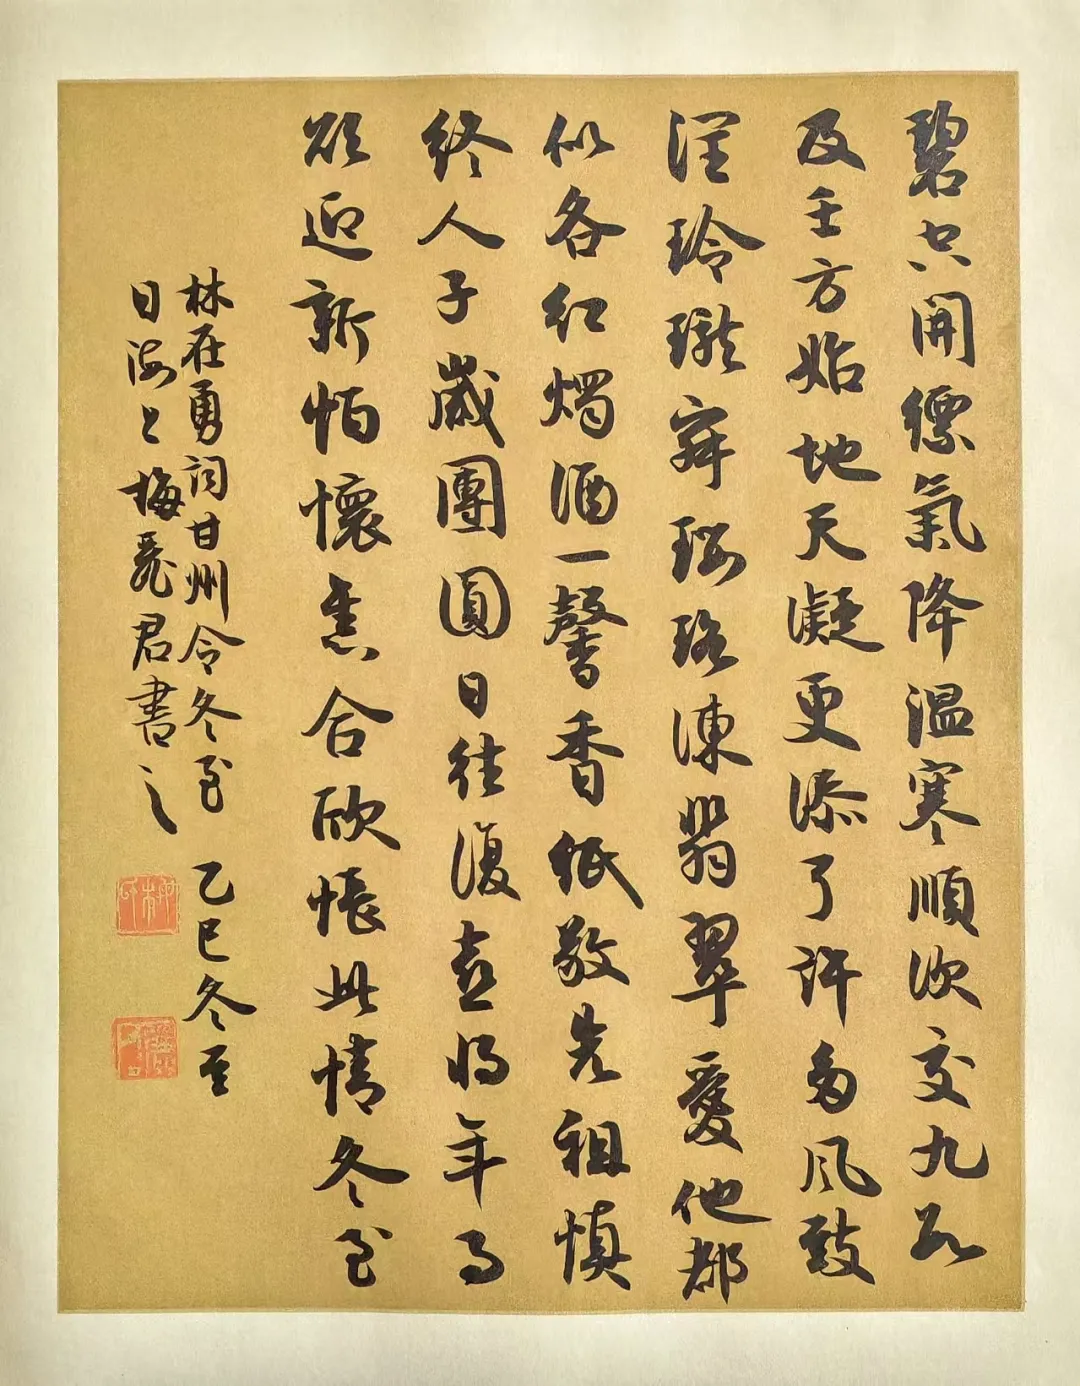 碧空開縹氣降温寒順次交九
及壬方始地天凝更添了許多風致
玲瓏舞瓔珞凍翡翠愛他都
似各紅燭酒一馨香紙敬先祖慎
終人子歲團圓日往復喜將年
欲迎新怕懷舊合欣悵此情冬至
林在勇詞甘州令冬至 乙巳冬至
日海上梅君書之